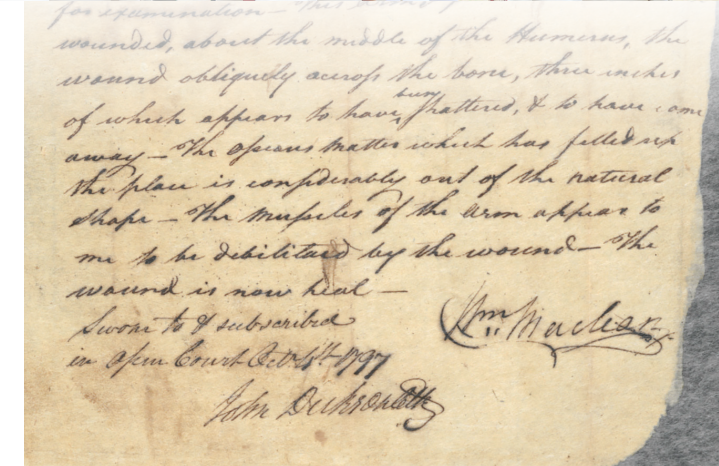 for examination – This
wounded, about the middle of the Humerus, the
wound obliquely across the bone, three inches
of which appears to have been shattered, & to have come
away – The Osseous Matter which has filled up
the place is considerably out of the natural
shape – The Muscles of the arm appear to
me to be debilitaed by the wound – The
wound is now heal –
Swoar to & subscribed
Wm. Maclean
in Open Court Octr. 1797
John Dickson Clk